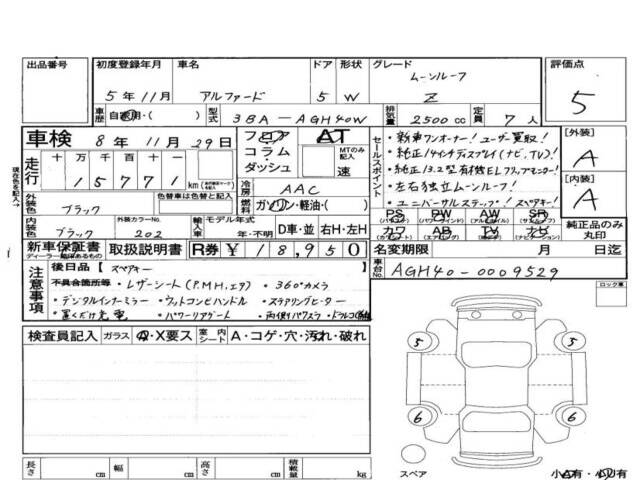 出品番号 初度登録年月 車名 ドア 形状 グレード 評価点
5年11月 アルファード 5 W ムーンルーフ Z 5
車歴 自家用・( ) 型式 3BA-AGH40W 排気量 2500cc 定員 7人
車検 8年11月29日
フロア コラム・ダッシュ AT MTのみ記入 速
セールスポイント
・新車ワンオーナー!ユーザー買取!
・純正14インチディスプレイ(ナビ,TV)!
・純正13.2型有機ELリアモニター!
・左右独立ムーンルーフ!
・ユニバーサルステップ! スペアキー!
[外装] A
[内装] A
現在色を記入→
走行 十 万 千 百 十 一
1 5 7 7 1 km
冷房 AAC
燃料 ガソリン・軽油・( )
外装色 ブラック 色替車は色替と記入
内装色 ブラック 外装カラーNo. 202
輸入車 モデル年式 年・不明 D車・並 右H・左H
PS PW AW SR
(パワステ) (パワーウィンド) (アルミホイール) (サンルーフ)
カワ AB TV ナビ
(エアバッグ) (テレビ) (ナビゲーション)
純正品のみ丸印
新車保証書 ディーラー記録あるもの 取扱説明書 R券 ¥18,950
名変期限 月 日迄
車台No. AGH40-0009529
注意事項
後日品 [ スペアキー ]
不具合箇所等
・レザーシート(P,M,H,エア) ・360°カメラ
・デジタルインナーミラー ・ウッドコンビハンドル ・ステアリングヒーター
・置くだけ充電 ・パワーリアゲート ・両側パワスラ
ロック車
検査員記入 ガラス A・X要ス 室内 シート A・コゲ・穴・汚れ・破れ
5 5
6 6
長さ cm 幅 cm 高さ cm 積載量 kg
スペア